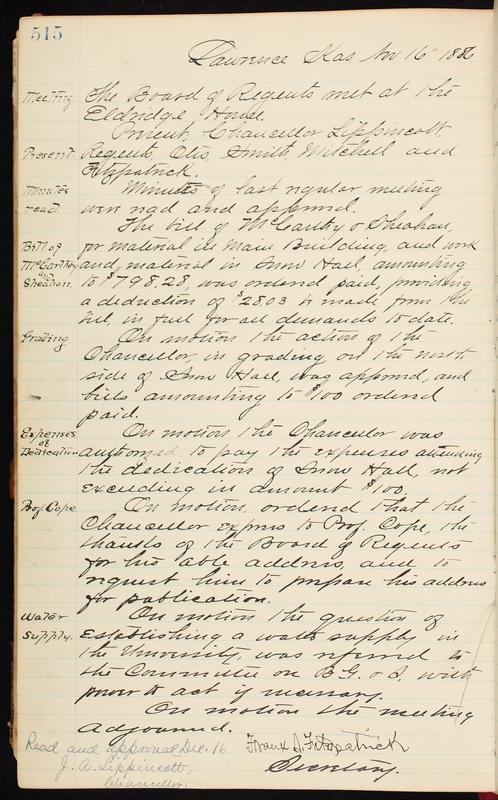 515
Lawrence Kas Nov 16" 1886.
Meeting. The Board of Regents met at the
Eldridge House.
Present, Chancellor Lippincott.
Present Regents, Otis, Smith, Mitchell and
Fitzpatrick.
Minutes Minutes of last regular meeting
read. were read and approved.
The bill of McCarthy & Sheahan,
Bill of for material in Main Building, and work
McCarthey and material in Snow Hall, amounting
& Sheahan. to $798.28, was ordered paid, providing
a deduction of $28.03 is made from the
bill, in full for all demands to date.
Grading On motion the action of the
Chancellor, in grading on the north
side of Snow Hall, was approved, and
bills amounting to $100 ordered
paid.
Expenses On motion the Chancellor was
of Dedication authorized to pay the expenses attending
the dedication of Snow Hall, not
exceeding in amount $100.
Prof. Cope On motion, ordered that the
Chancellor express to Prof. Cope, the
thanks of the Board of Regents
for his able address, and to
request him to prepare his address
for publication.
Water On motion the question of
Supply. establishing a water supply in
the University, was referred to
the Committee on B.G. & S. with
power to act if necessary.
On motion the meeting
adjourned.
Read and approved Dec. 16 Frank A. Fitzpatrick
J. A. Lippincott, Secretary.
Chancellor.